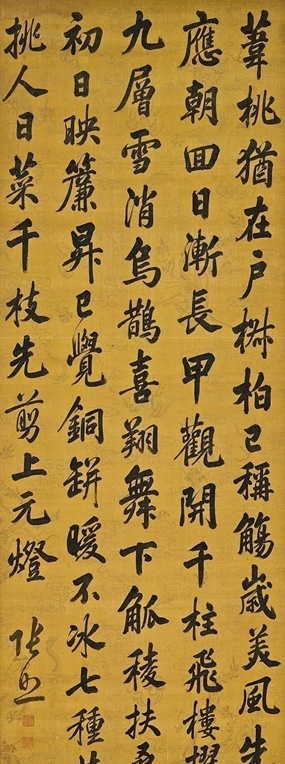 葦桃猶在戶椒柏已稱觴歲美風先
應朝囬日漸長甲觀開千柱飛樓擢
九層雪消烏鵲喜翔舞下觚稜扶
初日映簾昇已覺銅缾暖不冰七種
挑人日菜千枝先剪上元燈 張照